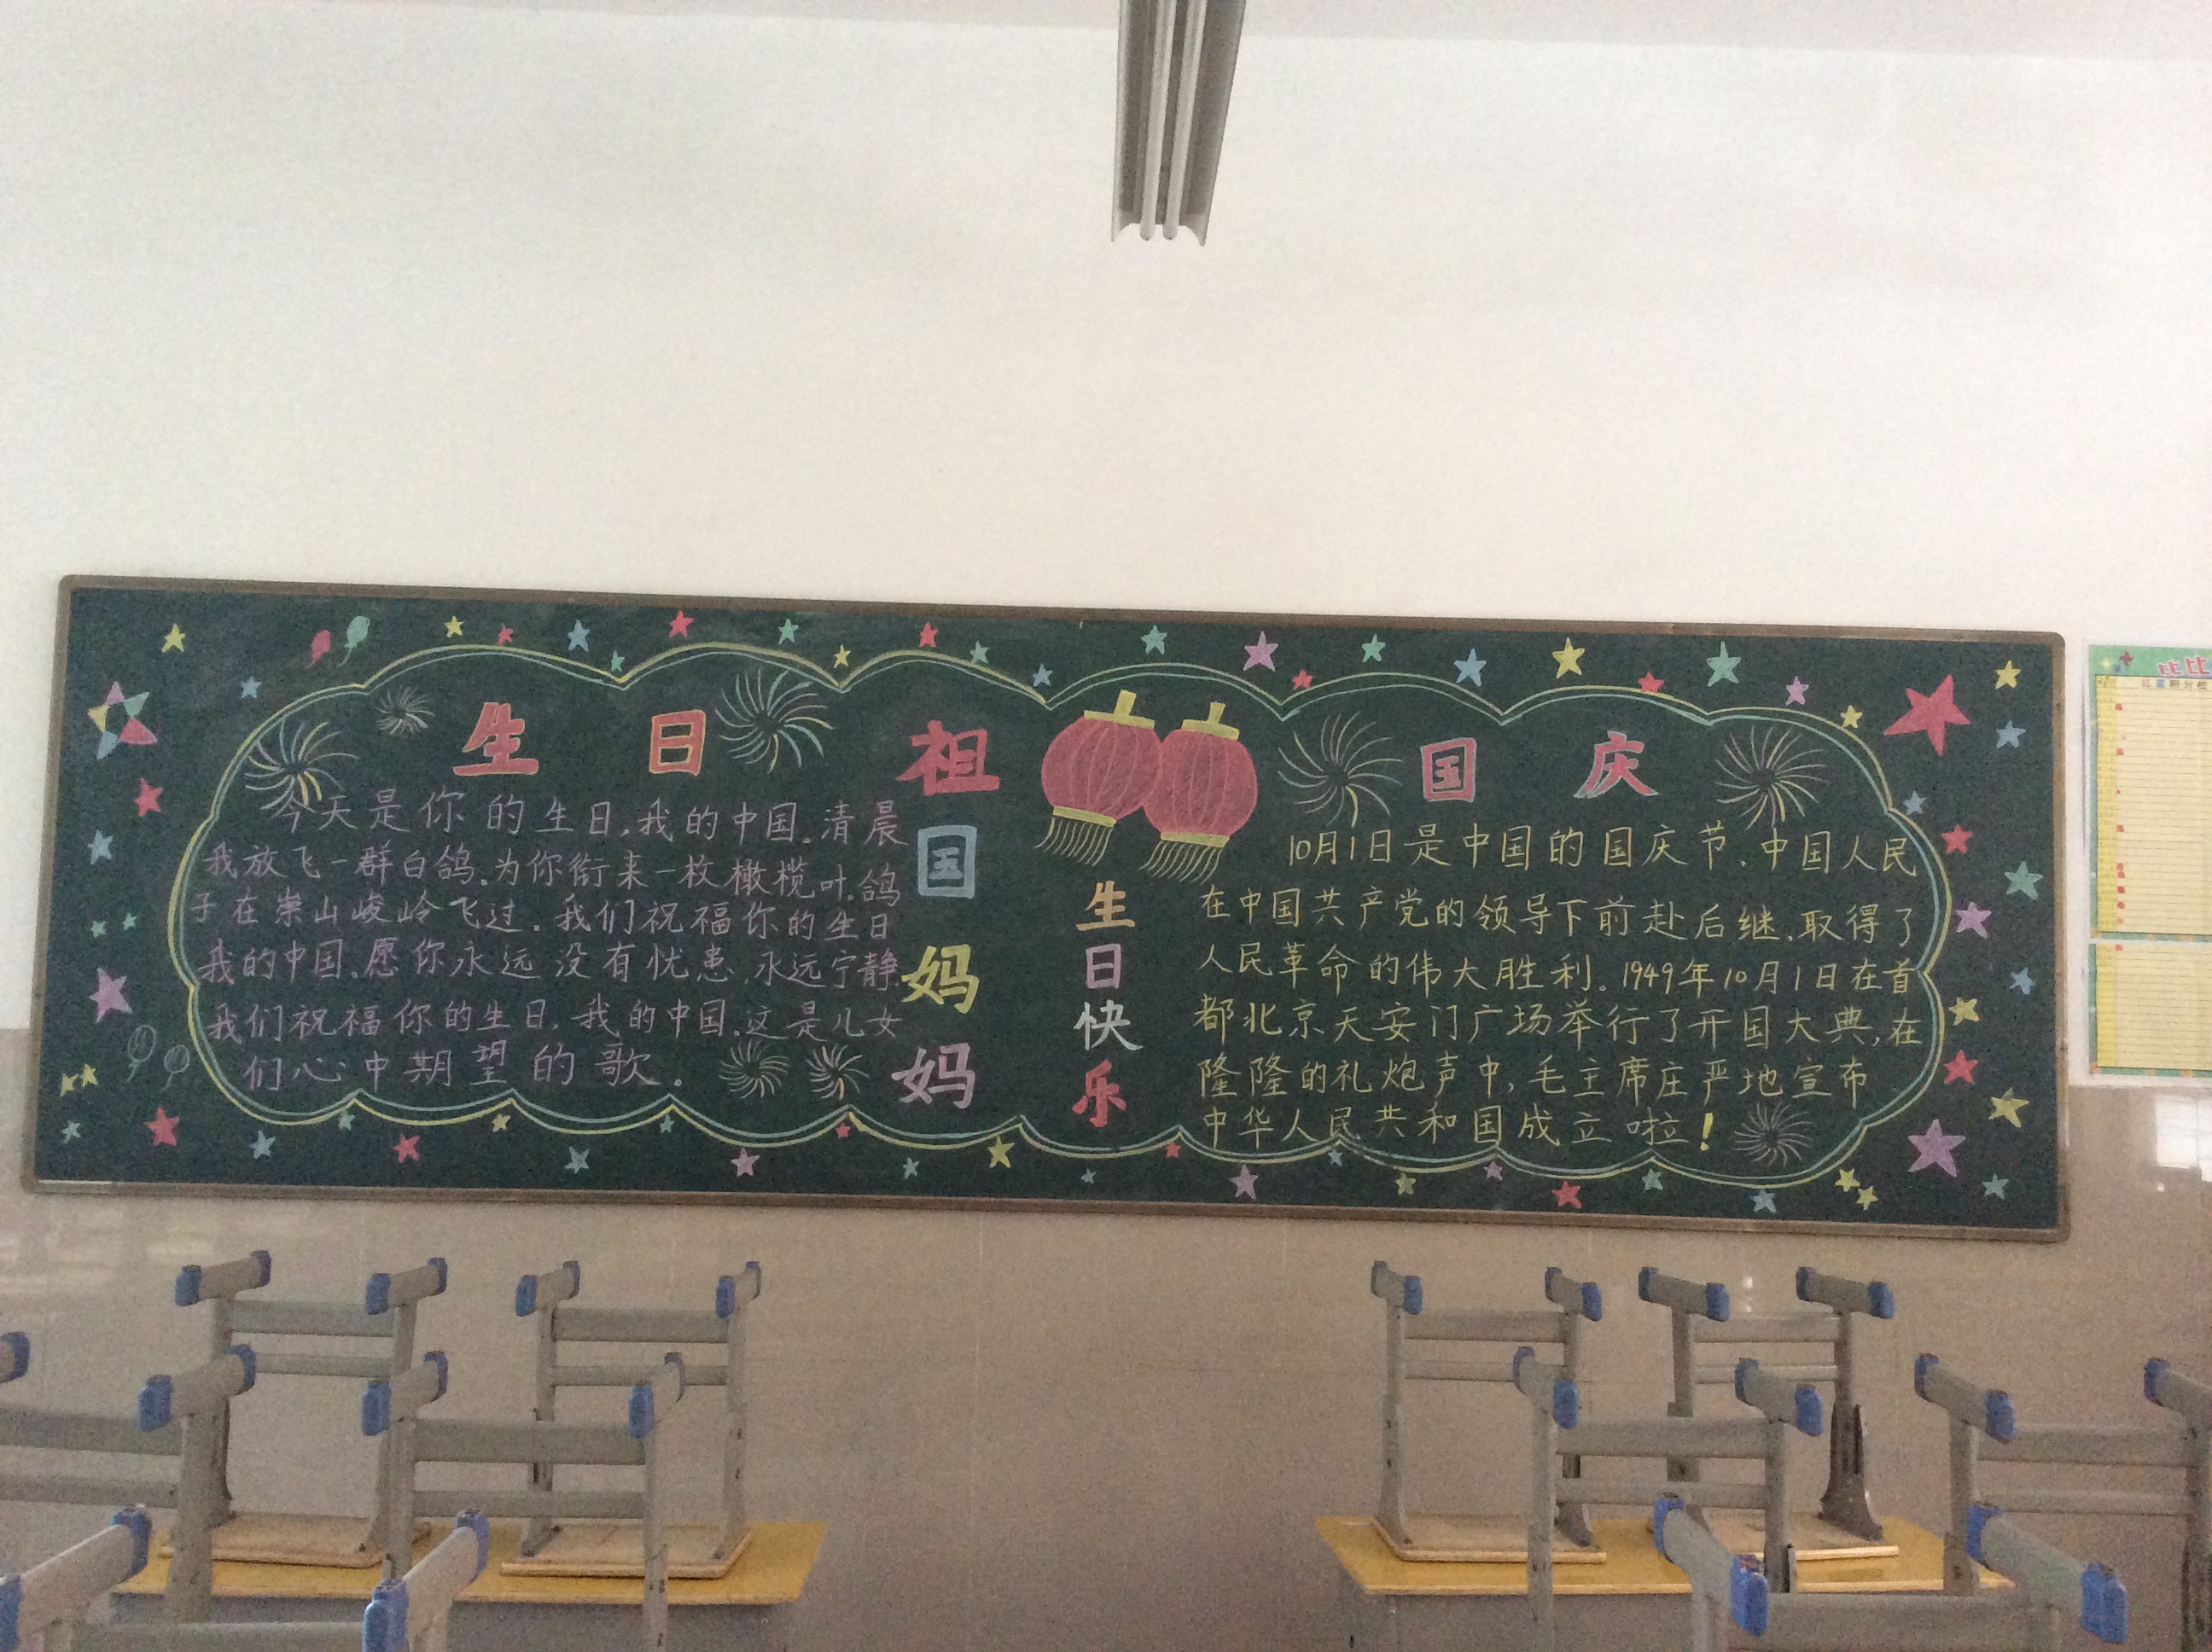 生日
今天是你的生日,我的中国。清晨
我放飞一群白鸽。为你衔来一枚橄榄叶。鸽
子在崇山峻岭飞过。我们祝福你的生日
我的中国。愿你永远没有忧患,永远宁静.
我们祝福你的生日,我的中国。这是儿女
们心中期望的歌。
祖国妈妈
生日快乐
国庆
10月1日是中国的国庆节,中国人民
在中国共产党的领导下前赴后继,取得了
人民革命的伟大胜利。1949年10月1日在首
都北京天安门广场举行了开国大典,在
隆隆的礼炮声中,毛主席庄严地宣布
中华人民共和国成立啦!
比比